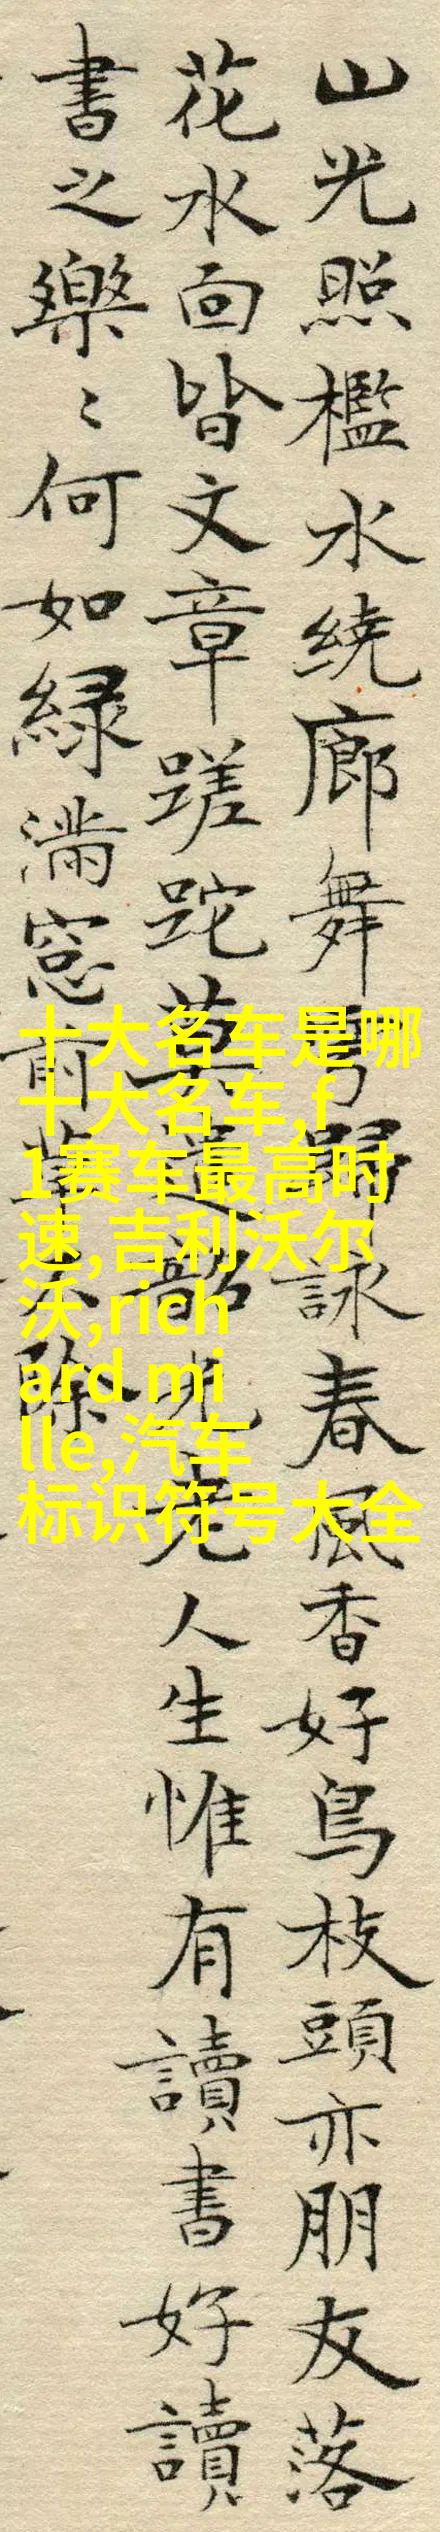 山光照檻水绕廊舞雩歸詠春風香好鳥枝頭亦朋友落
花水面皆文章蹉跎莫遣韶光老人生惟有讀書好讀
書之樂〻何如緑滿窓前草不除
十大名车是哪
十大名车,f
1赛车最高时
速,吉利沃尔
沃,rich
ard mi
lle,汽车
标识符号大全